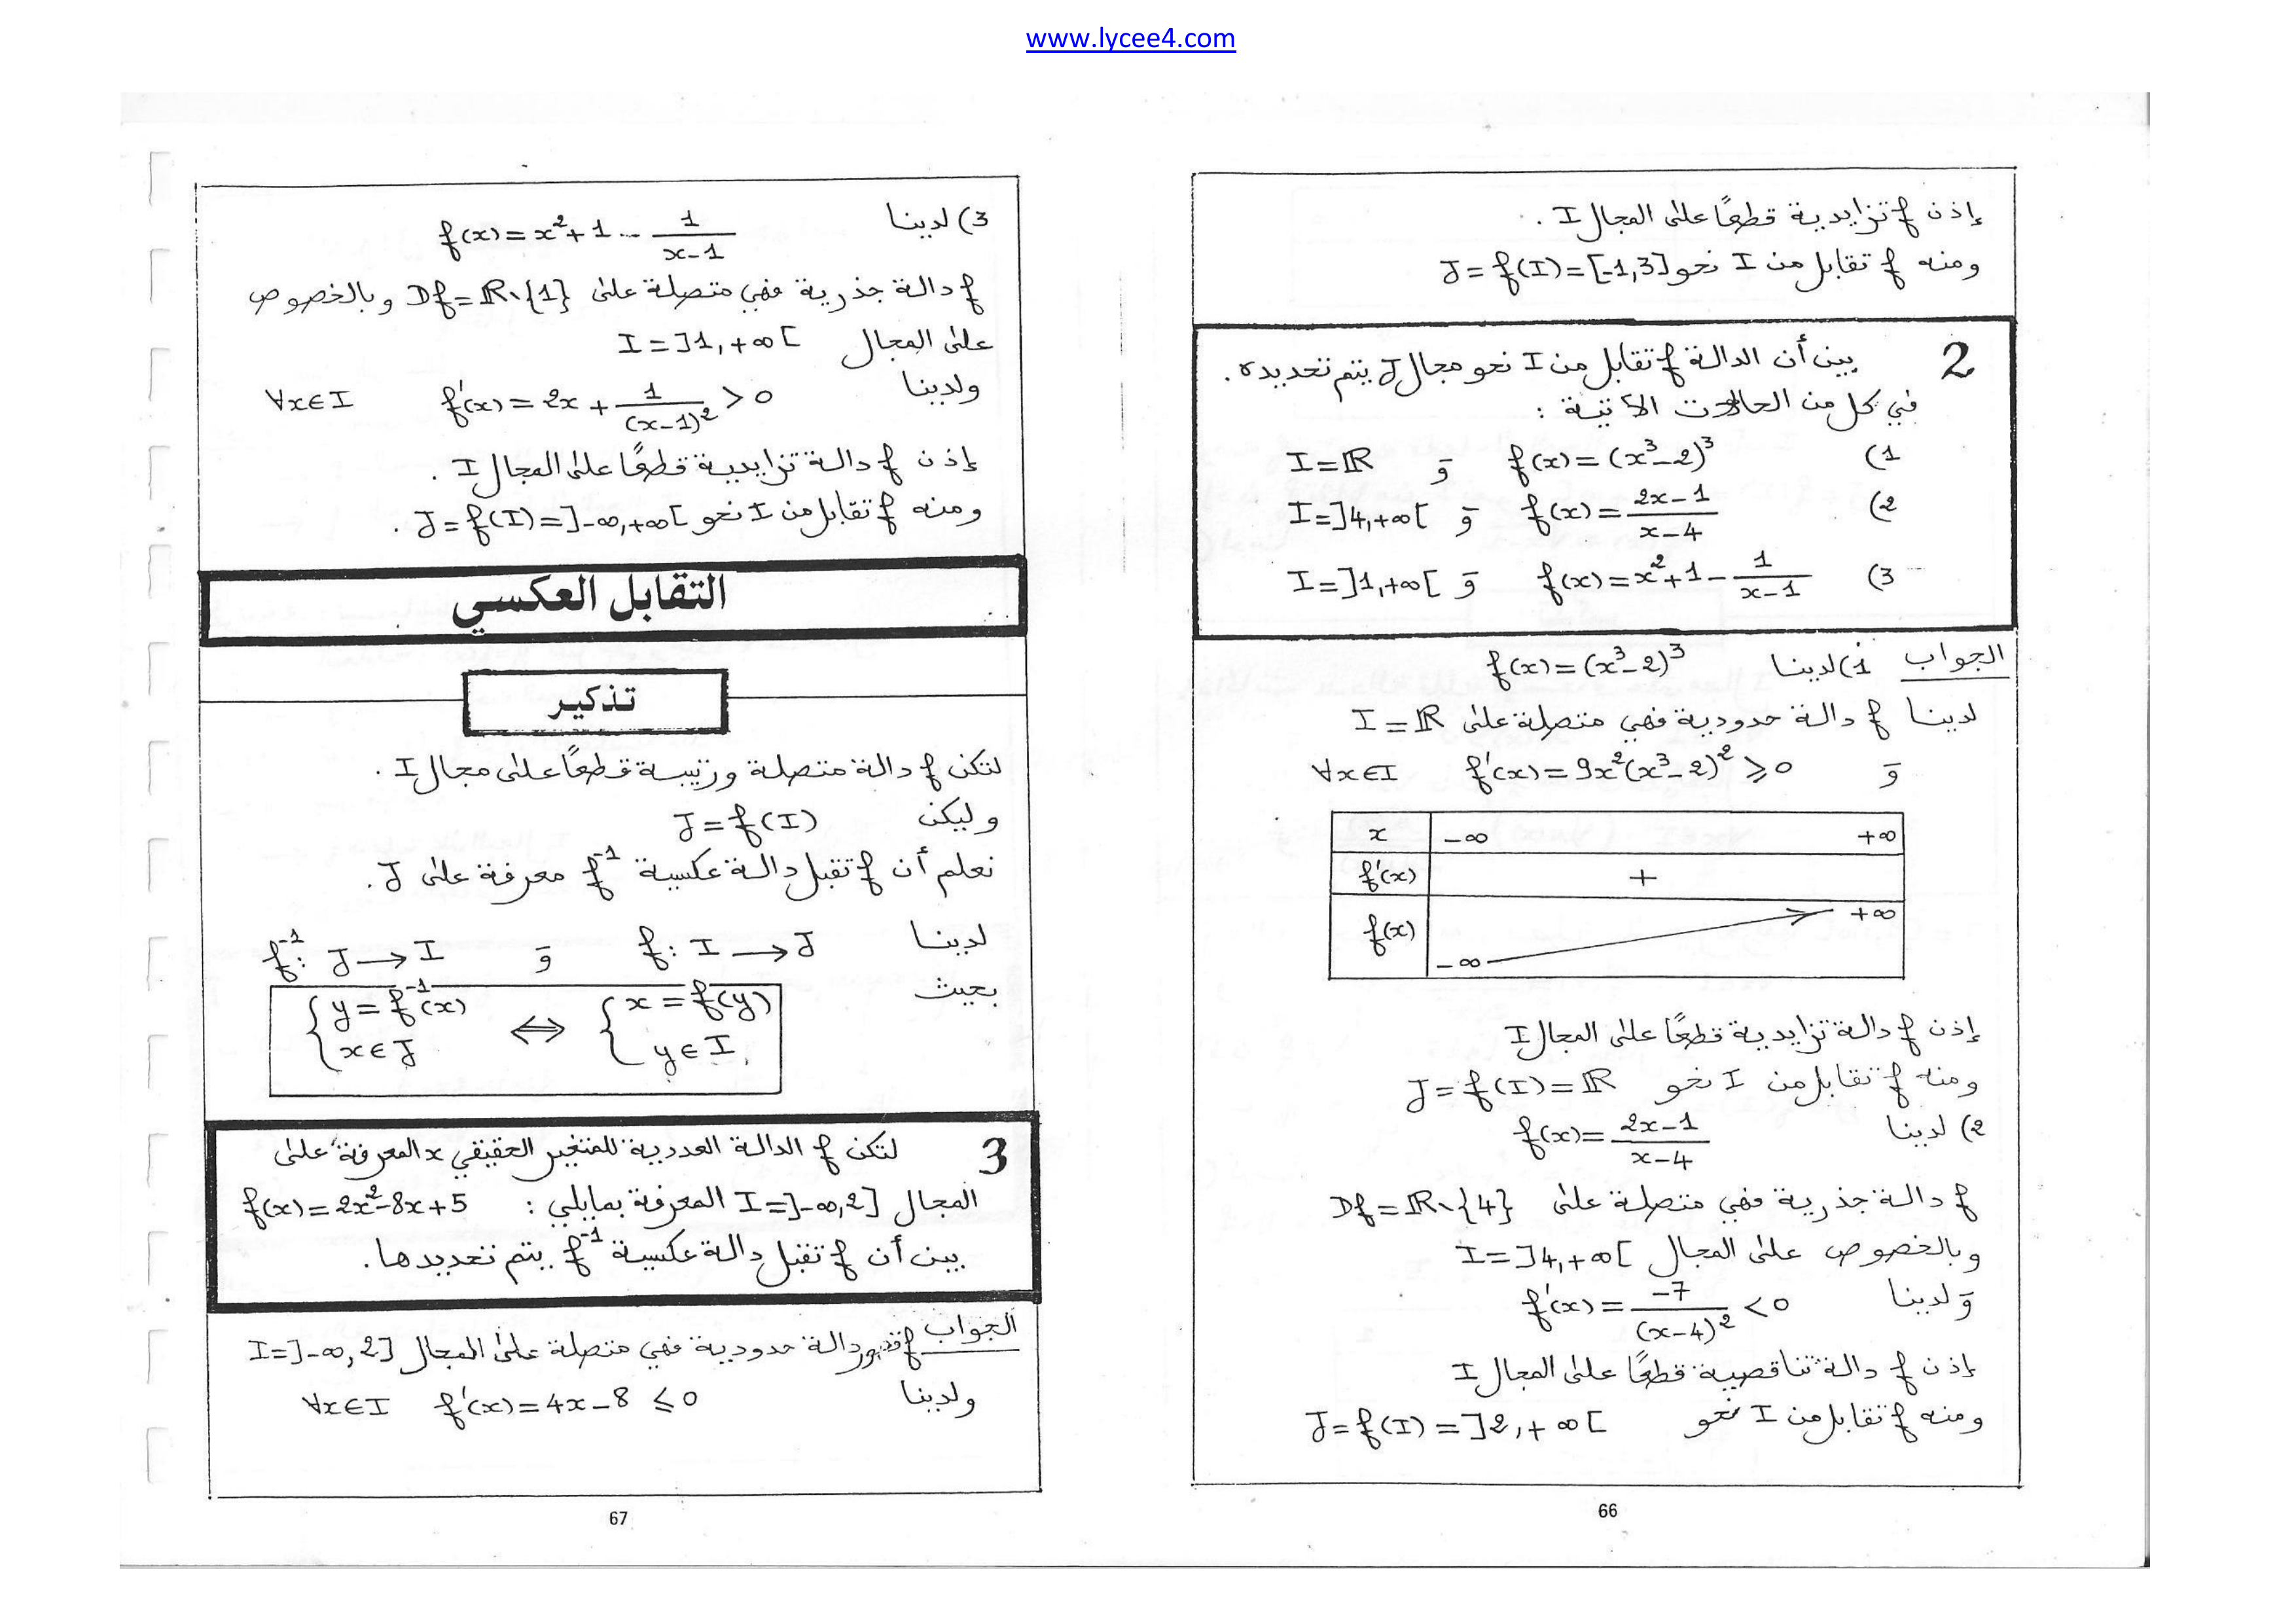 www.lycee4.com
إذن f تزايدية قطعًا على المجال I .
ومنه f تقابل من I نحو J = f(I) = [-1,3]
2 بين أن الدالة f تقابل من I نحو مجال J يتم تحديده .
في كل من الحالات الآتية :
1) f(x) = (x³-2)³ و I = ℝ
2) f(x) = (2x-1)/(x-4) و I = ]4,+∞[
3) f(x) = x²+1 - 1/(x-1) و I = ]1,+∞[
الجواب 1) لدينا f(x) = (x³-2)³
لدينا f دالة حدودية فهي متصلة على I = ℝ
و f'(x) = 9x²(x³-2)² ⩾ 0 ∀x∈I
x -∞ +∞
f'(x) +
f(x) -∞ +∞
إذن f دالة تزايدية قطعًا على المجال I
ومنه f تقابل من I نحو J = f(I) = ℝ
2) لدينا f(x) = (2x-1)/(x-4)
f دالة جذرية فهي متصلة على Df = ℝ\{4}
وبالخصوص على المجال I = ]4,+∞[
و لدينا f'(x) = -7/(x-4)² < 0
إذن f دالة تناقصية قطعًا على المجال I
ومنه f تقابل من I نحو J = f(I) = ]2,+∞[
66
3) لدينا f(x) = x²+1 - 1/(x-1)
f دالة جذرية فهي متصلة على Df = ℝ\{1} وبالخصوص
على المجال I = ]1,+∞[
ولدينا f'(x) = 2x + 1/(x-1)² > 0 ∀x∈I
إذن f دالة تزايدية قطعًا على المجال I .
ومنه f تقابل من I نحو J = f(I) = ]-∞,+∞[ .
التقابل العكسي
تذكير
لتكن f دالة متصلة ورتيبة قطعًا على مجال I .
وليكن J = f(I)
نعلم أن f تقبل دالة عكسية f⁻¹ معرفة على J .
لدينا f: I → J و f⁻¹: J → I
بحيث { x = f(y) y∈I ⇔ { y = f⁻¹(x) x∈J
3 لتكن f الدالة العددية للمتغير الحقيقي x المعرفة على
المجال I = ]-∞,2] المعرفة بمايلي : f(x) = 2x²-8x+5
بين أن f تقبل دالة عكسية f⁻¹ يتم تحديدها .
الجواب f دالة حدودية فهي متصلة على المجال I = ]-∞,2]
ولدينا f'(x) = 4x-8 ⩽ 0 ∀x∈I
67